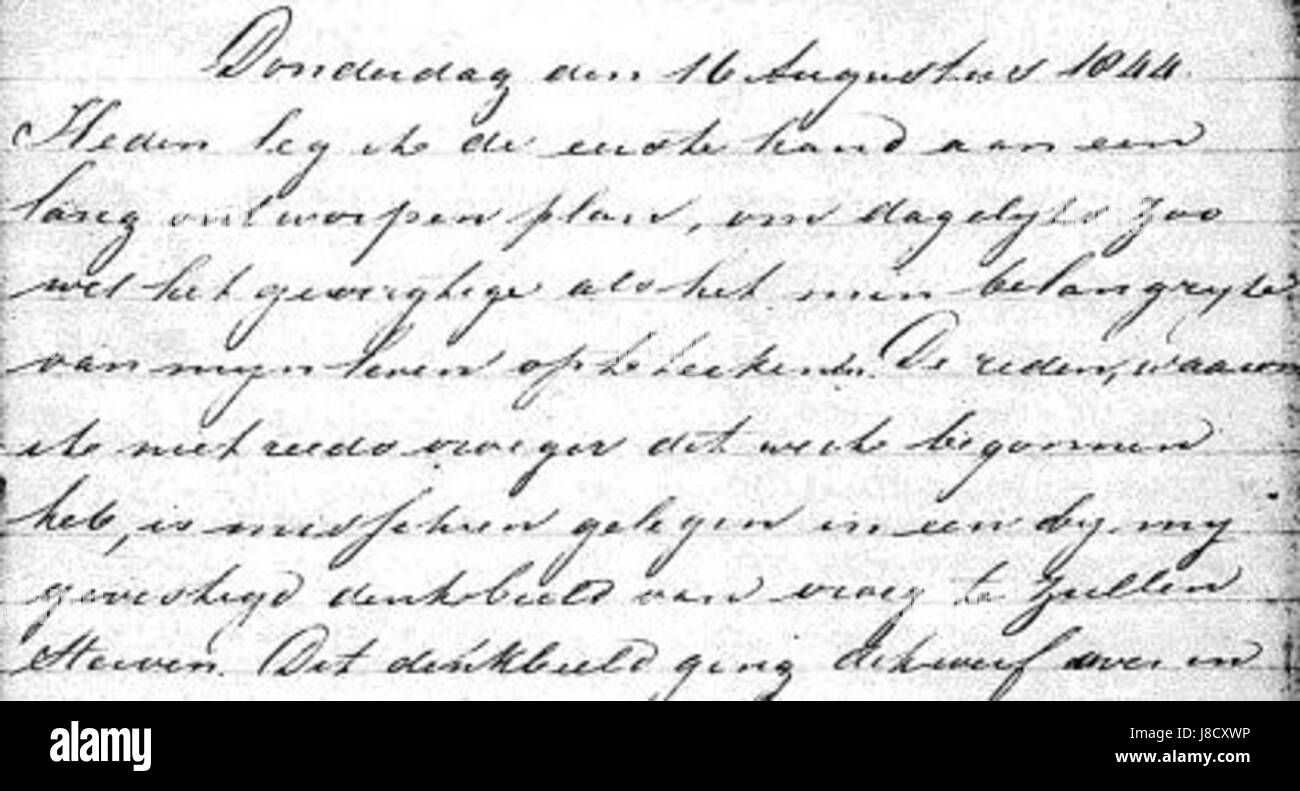 Donderdag den 16 Augustus 1844.
Heden leg ik de eerste hand aan een
lang ontworpen plan, om dagelyks zoo
wel het gewigtige als het min belangryke
van myn leven op te teekenen. De reden, waarom
ik niet reeds vroeger dit werk begonnen
heb, is misschien gelegen in een by my
gevestigd denkbeeld van vroeg te zullen
sterven. Dit denkbeeld ging dikwerf over in
alamy
Image ID: J8CXWP
www.alamy.com